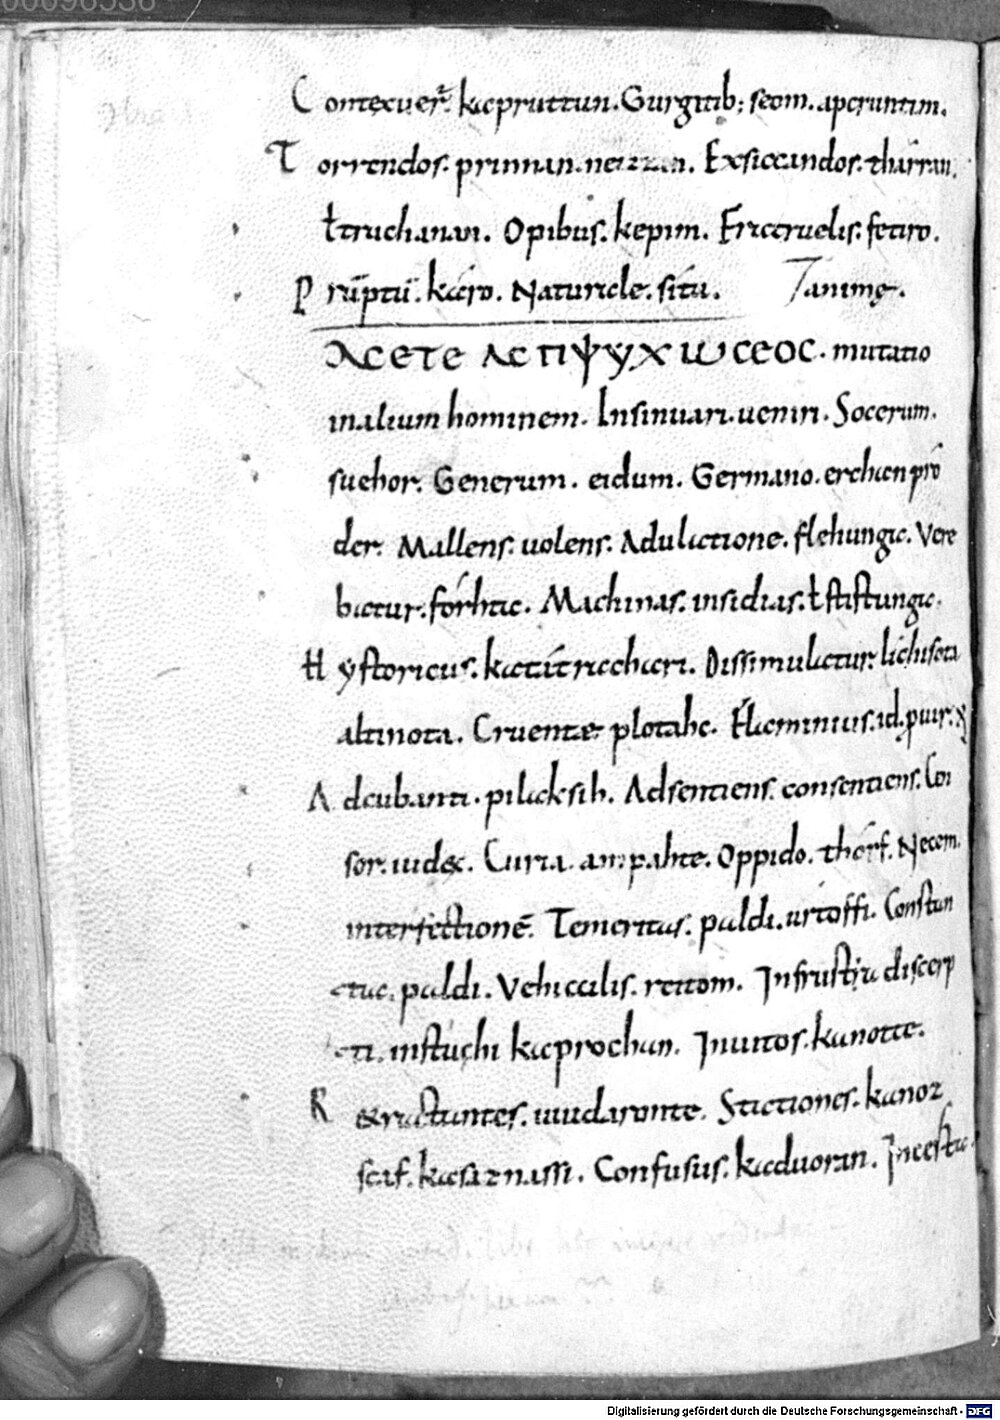 Contexuer̄. kapruttun. Gurgitib; seom. aperuntim.
Torrendos. prinnan. Exsiccandos. tharran.
ł truchanan. Opibus. kepim. Fractuelis. fetiro.
Prūptū. káro. Naturale. sítu. ⁊ animę.
ACETE ΛC ΠΨYXIωCEOC. mutatio
in alium hominem. Insinuari. ueniri. Socerum.
suehor. Generum. eidum. Germano. erchan pro
der. Mallens. uolens. Adulatione. flehungu. Vere
batur. forhtac. Machinas. insidias. ł stiftungu.
Hystoricus. katátrachari. Dissimulatur. lichisota
altinota. Cruente plotahc. Flaminius. id. puir.
Adcubanti. pilacksih. Adsentiens. consentiens. Coi
sor. iudex. Curia. ampahte. Oppido. thorf. Necem.
interfectionē. Temeritas. paldi. urtoffi. Constan
tia. paldi. Vehiculis. reitom. In frusta discerp
ti. in stuchi kaprochan. Inuitos. kanotte.
R &ractantes. uuidaronte. Stationes. kanoz
scaf. kasaznassi. Confusus. kaduoran. Incestu
Digitalisierung gefördert durch die Deutsche Forschungsgemeinschaft - DFG